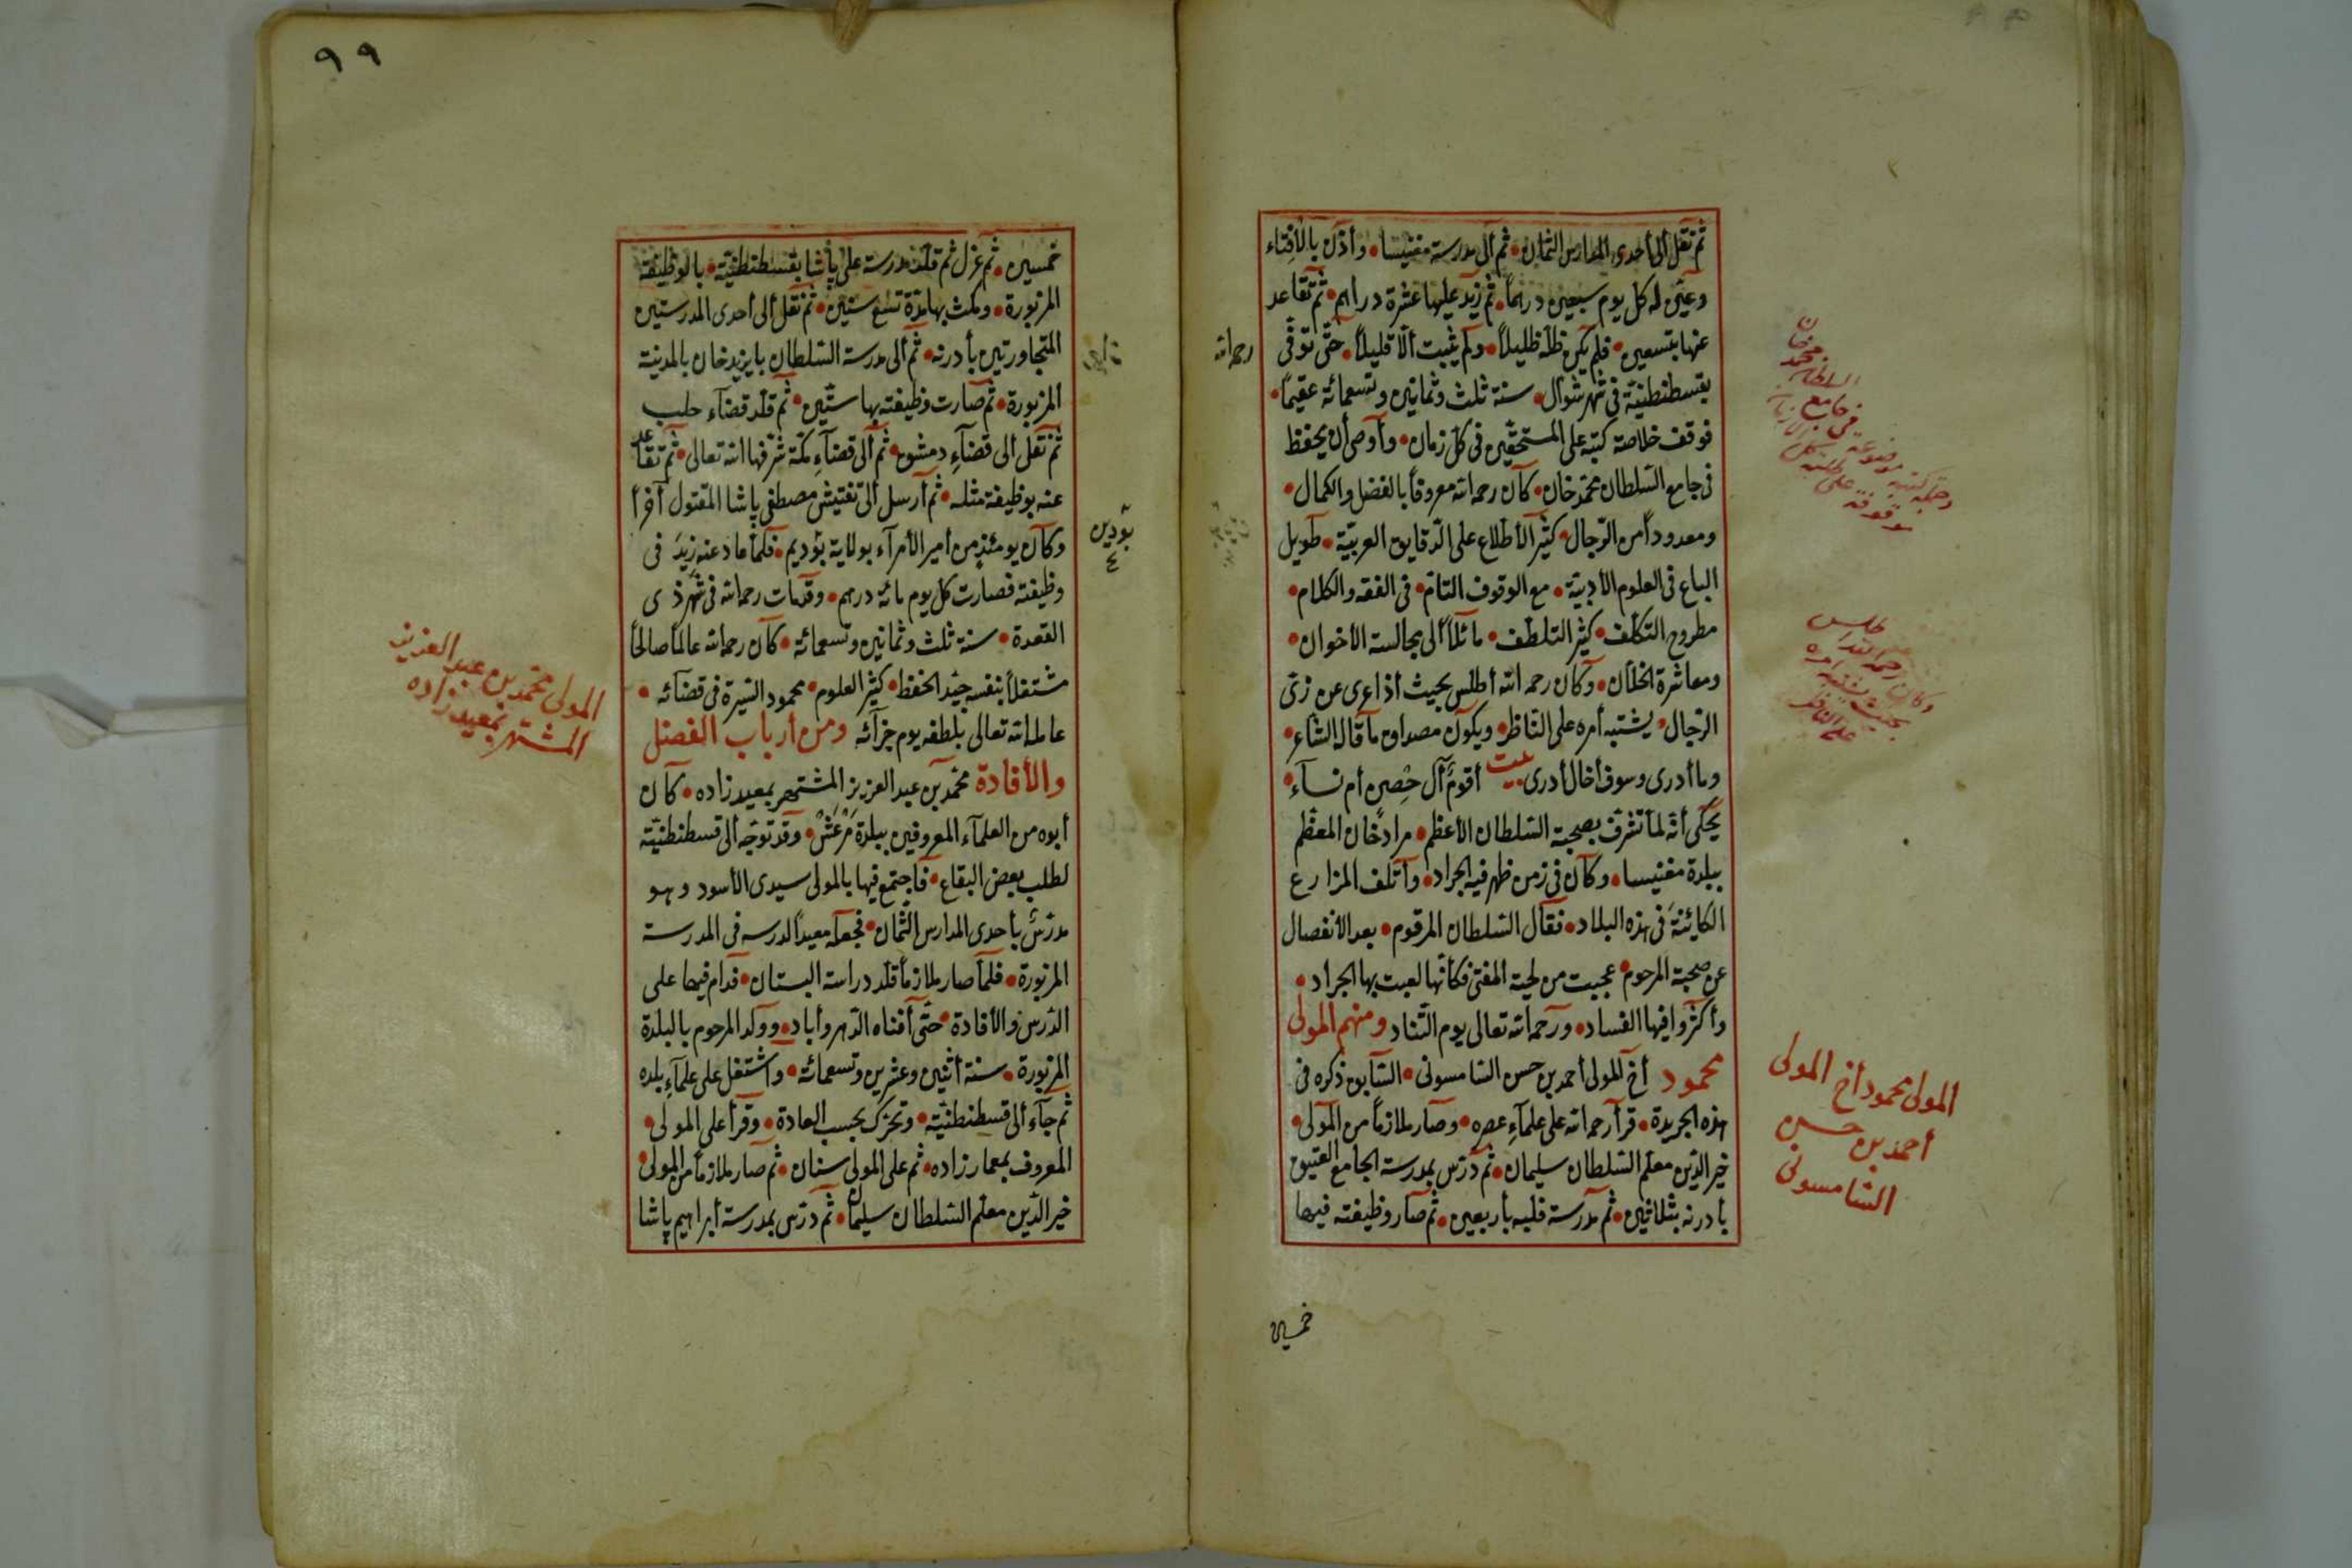 ثم نقل الى أحدى المدارس الثمان • ثم ألى مدرسة مغنيسا • وأذن بالأفتاء
وعيّن له كل يوم سبعين درهماً • ثم زيد عليها عشرة دراهم • ثم تقاعد
عنها بتسعين • فلم يكن ظلّه ظليلاً • ولم يثبت ألّا قليلاً • حتّى توفّى
رحمه الله
بقسطنطنيّة فى شهر شوّال • سنة ثلث وثمانين وتسعمائة عقيماً •
فوقف خلاصة كتبه على المستحقّين فى كل زمان • وأوصى أن يحفظ
فى جامع السّلطان محمّد خان • كان رحمه الله معروفاً بالفضل والكمال •
ومعدوداً من الرّجال • كثير الأطّلاع على الدّقايق العربيّة • طويل
الباع فى العلوم الأدبيّة • مع الوقوف التّامّ • فى الفقه والكلام •
مطروح التكلّف • كثير التلطّف • مائلاً ألى مجالسة الأخوان •
ومعاشرة الخلّان • وكان رحمه الله أطلس بحيث أذا عرى عن زىّ
الرّجال • يشتبه أمره على النّاظر • ويكون مصداق ما قال الشّاعر •
وما أدرى وسوف أخال أدرى بيت أقومٌ آل حِصن أم نسآء •
يحكى أنّه لمّا تشرّف بصحبة السّلطان الأعظم • مراد خان المعظّم
ببلدة مغنيسا • وكان فى زمن ظهر فيه الجراد • وأتلف المزارع
الكائنة فى هذه البلاد • فقال السّلطان المرقوم • بعد الأنفصال
عن صحبة المرحوم • عجبت من لحية المفتى فكأنّها لعبت بها الجراد •
وأكثروا فيها الفساد • ورحمه الله تعالى يوم التّناد ومنهم المولى
محمود أخ المولى أحمد بن حسن السّامسونى • السّابق ذكره فى
هذه الجريدة • قرأ رحمه الله على علمآءِ عصره • وصار ملازماً من المولى •
خير الدّين معلّم السّلطان سليمان • ثم درّس بمدرسة الجامع العتيق
بأدرنه بثلاثين • ثم مدرسة فلبه بأربعين • ثم صار وظيفته فيها
خمسين
السلطان محمد خان
فى جامع
وجعل كتبه موضوعة
موقوفة على طلبة
وكان رحمه الله اطلس
بحيث يشتبه امره
على الناظر
المولى محمود أخ المولى
أحمد بن حسن
السّامسونى
٩٩
خمسين • ثم عزل ثم قلّد مدرسة على پاشا بقسطنطنيّة • بالوظيفة
المزبورة • ومكث بها مدّة تسع سنين • ثم نقل ألى أحدى المدرستين
المتجاورتين بأدرنه • ثم ألى مدرسة السّلطان بايزيد خان بالمدينة
المزبورة • ثم صارت وظيفته بها ستّين • ثم قلّد قضآء حلب
ثم نقل ألى قضآءِ دمشق • ثم ألى قضآءِ مكّة شرّفها الله تعالى • ثم تقاعد
عنه بوظيفة مثله • ثم أرسل ألى تفتيش مصطفى پاشا المقتول آخراً
وكان يومئذٍ من أمير الأمرآء بولاية بوديم • فلمّا عاد عنه زِيدَ فى
بودين
٤
وظيفته فصارت كل يوم مائة درهم • وقد مات رحمه الله فى شهر ذى
القعدة • سنة ثلث وثمانين وتسعمائة • كان رحمه الله عالماً صالحاً
مشتغلاً بنفسه جيّد الحفظ • كثير العلوم • محمود السّيرة فى قضآئه •
عامله الله تعالى بلطفه يوم جزآئه ومن أرباب الفضل
والأفادة محمّد بن عبد العزيز المشتهر بمعيد زاده • كان
أبوه من العلمآء المعروفين ببلدة مَرْعَشْ • وقد توجّه ألى قسطنطنيّة
لطلب بعض البقاع • فأجتمع فيها بالمولى سيدى الأسود وهو
مدرّسٌ بأحدى المدارس الثّمان • فجعله معيداً لدرسه فى المدرسة
المزبورة • فلمّا صار ملازماً قلّد دراسة البستان • فدام فيها على
الدّرس والأفادة • حتّى أفناه الدّهر وأباد • وولد المرحوم بالبلدة
المزبورة • سنة أثنين وعشرين وتسعمائة • وأشتغل على علمآءِ بلده
ثم جآء ألى قسطنطنيّة • وتحرّك بحسب العادة • وقرأ على المولى •
المعروف بمعمار زاده • ثم على المولى سنان • ثم صار ملازماً من المولى
خير الدّين معلّم السّلطان سليمان • ثم درّس بمدرسة أبراهيم پاشا
المولى محمّد بن عبد العزيز
المشتهر بمعيد زاده